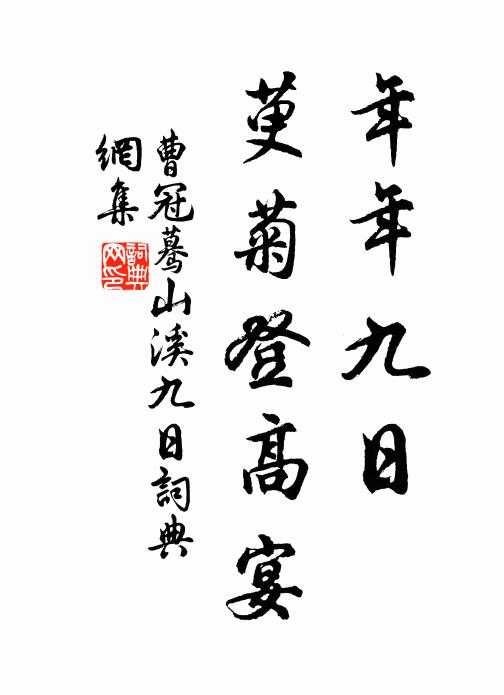 年年九日
萸菊登高宴
曹冠蓦山溪九日詞典
網集
詞典网印